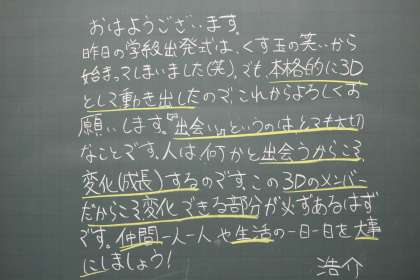 おはようございます。
昨日の学級出発式は、くす玉の笑いから
始まってしまいました(笑)。でも、本格的に3D
として動き出したので、これからよろしくお
願いします。『出会い』というのは、とても大切
なことです。人は、何かと出会うからこそ、
変化(成長)するのです。この3Dのメンバー
だからこそ変化できる部分が必ずあるはず
です。仲間一人一人や生活の一日一日を大事
にしましょう!
浩介